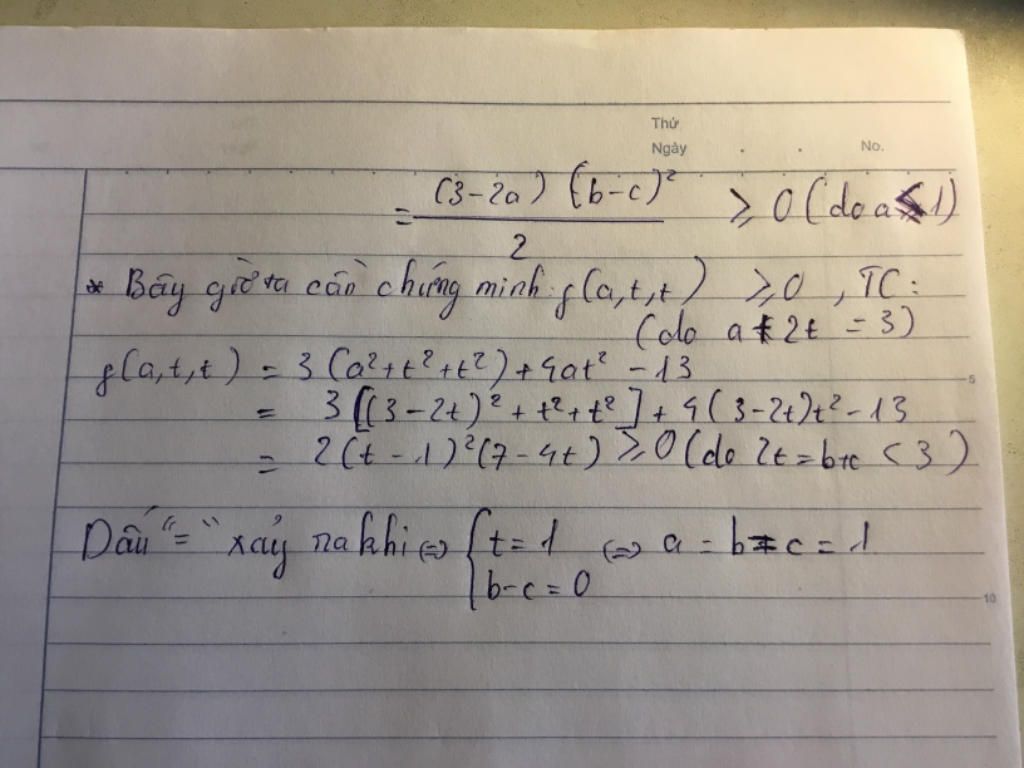 Thứ
Ngày . . No.
= (3-2a) (b-c)² / 2 ≥ 0 (do a ≤ 1)
* Bây giờ ta cần chứng minh: f(a,t,t) ≥ 0 , TC:
(do a + 2t = 3)
f(a,t,t) = 3(a²+t²+t²)+4at² -13
5
= 3[(3-2t)²+t²+t²]+4(3-2t)t²-13
= 2(t-1)²(7-4t) ≥ 0 (do 2t = b+c < 3)
Dấu "=" xảy ra khi ⇔ { t = 1 ⇔ a = b = c = 1
b-c = 0
10